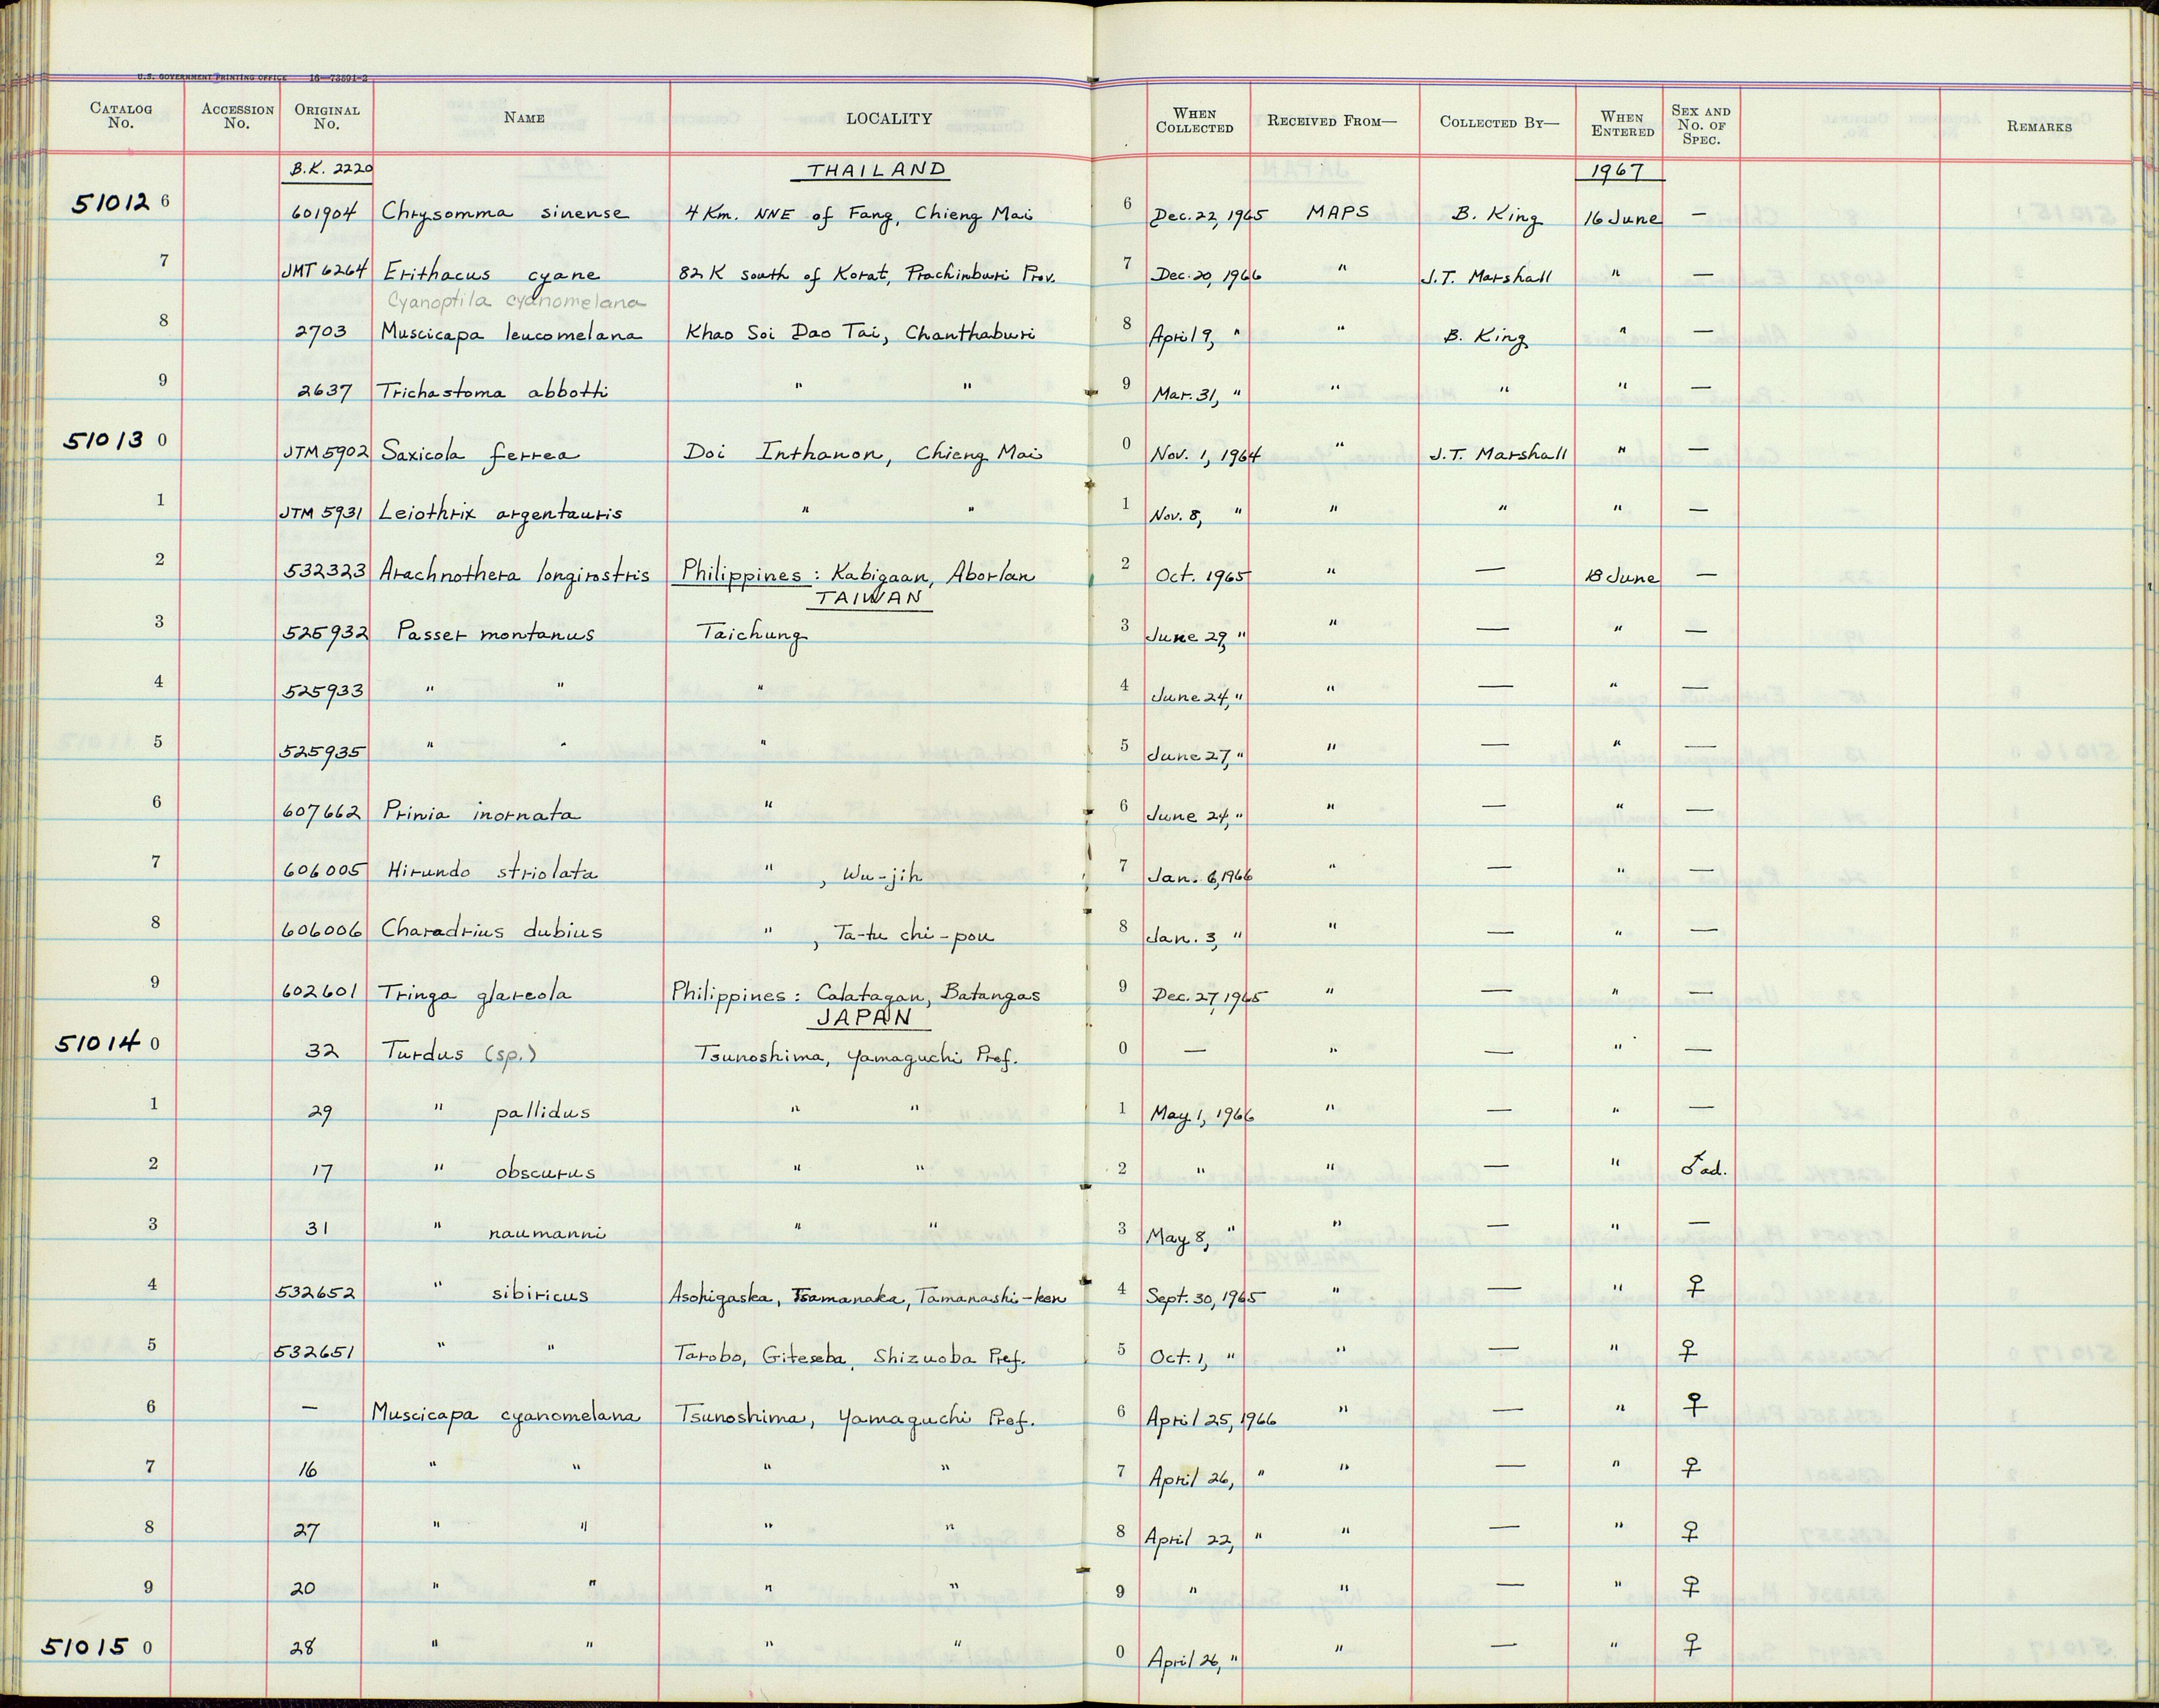 U.S. GOVERNMENT PRINTING OFFICE 16—73891-2
CATALOG No. ACCESSION No. ORIGINAL No. NAME LOCALITY WHEN COLLECTED RECEIVED FROM— COLLECTED BY— WHEN ENTERED SEX AND No. OF SPEC. REMARKS
B.K. 2220 THAILAND 1967
51012 6 601904 Chrysomma sinense 4 Km. NNE of Fang, Chieng Mai 6 Dec. 22, 1965 MAPS B. King 16 June —
7 JMT 6264 Erithacus cyane 82 K south of Korat, Prachinburi Prov. 7 Dec. 20, 1966 " J.T. Marshall " —
Cyanoptila cyanomelana
8 2703 Muscicapa leucomelana Khao Soi Dao Tai, Chanthaburi 8 April 9, " " B. King " —
9 2637 Trichastoma abbotti " " 9 Mar. 31, " " " " —
51013 0 JTM 5902 Saxicola ferrea Doi Inthanon, Chieng Mai 0 Nov. 1, 1964 " J.T. Marshall " —
1 JTM 5931 Leiothrix argentauris " " 1 Nov. 8, " " " " —
2 532323 Arachnothera longirostris Philippines : Kabigaan, Aborlan 2 Oct. 1965 " — 18 June —
TAIWAN
3 525932 Passer montanus Taichung 3 June 29, " " — " —
4 525933 " " " 4 June 24, " " — " —
5 525935 " " " 5 June 27, " " — " —
6 607662 Prinia inornata " 6 June 24, " " — " —
7 606005 Hirundo striolata " , Wu-jih 7 Jan. 6, 1966 " — " —
8 606006 Charadrius dubius " , Ta-tu chi-pou 8 Jan. 3, " " — " —
9 602601 Tringa glareola Philippines : Calatagan, Batangas 9 Dec. 27, 1965 " — " —
JAPAN
51014 0 32 Turdus (sp.) Tsunoshima, Yamaguchi Pref. 0 — " — " —
1 29 " pallidus " " 1 May 1, 1966 " — " —
2 17 " obscurus " " 2 " " — " ♂ ad.
3 31 " naumanni " " 3 May 8, " " — " —
4 532652 " sibiricus Asohigaska, Tsamanaka, Tamanashi-ken 4 Sept. 30, 1965 " — " ♀
5 532651 " " Tarobo, Giteseba, Shizuoba Pref. 5 Oct. 1, " " — " ♀
6 — Muscicapa cyanomelana Tsunoshima, Yamaguchi Pref. 6 April 25, 1966 " — " ♀
7 16 " " " " 7 April 26, " " — " ♀
8 27 " " " " 8 April 22, " " — " ♀
9 20 " " " " 9 " " — " ♀
51015 0 28 " " " " 0 April 26, " " — " ♀